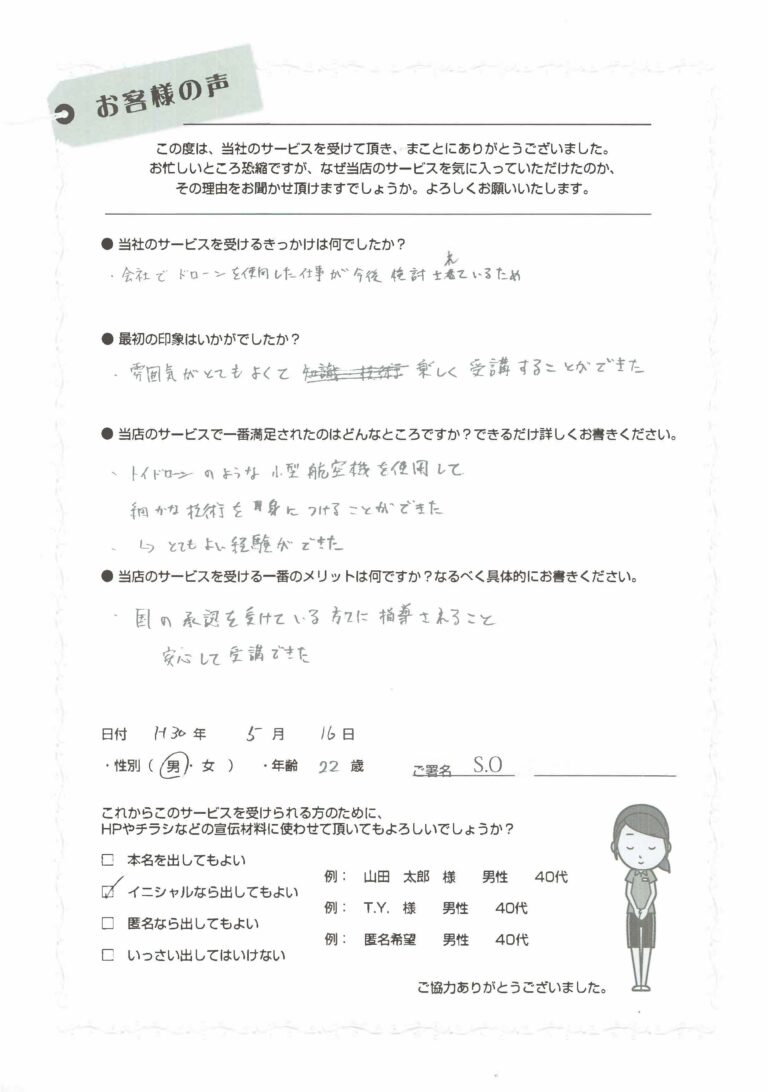 お客様の声
この度は、当社のサービスを受けて頂き、まことにありがとうございました。
お忙しいところ恐縮ですが、なぜ当店のサービスを気に入っていただけたのか、
その理由をお聞かせ頂けますでしょうか。よろしくお願いいたします。
● 当社のサービスを受けるきっかけは何でしたか？
・会社で ドローンを使用した仕事が 今後 検討 考えているため
● 最初の印象はいかがでしたか？
・雰囲気がとてもよくて 知識・技術 楽しく 受講することができた
● 当店のサービスで一番満足されたのはどんなところですか？できるだけ詳しくお書きください。
・トイドローンのような 小型航空機を使用して
細かな技術を 身につけることができた
・↳ とてもよい経験ができた
● 当店のサービスを受ける一番のメリットは何ですか？なるべく具体的にお書きください。
・国の承認を受けている 方々に 指導されること
安心して受講できた
日付 H30 年 5 月 16 日
・性別（ 男 ・ 女 ） ・年齢 22 歳 ご署名 S.O
これからこのサービスを受けられる方のために、
HPやチラシなどの宣伝材料に使わせて頂いてもよろしいでしょうか？
□ 本名を出してもよい
例： 山田 太郎 様 男性 40代
☑ イニシャルなら出してもよい
例： T.Y. 様 男性 40代
□ 匿名なら出してもよい
例： 匿名希望 男性 40代
□ いっさい出してはいけない
ご協力ありがとうございました。